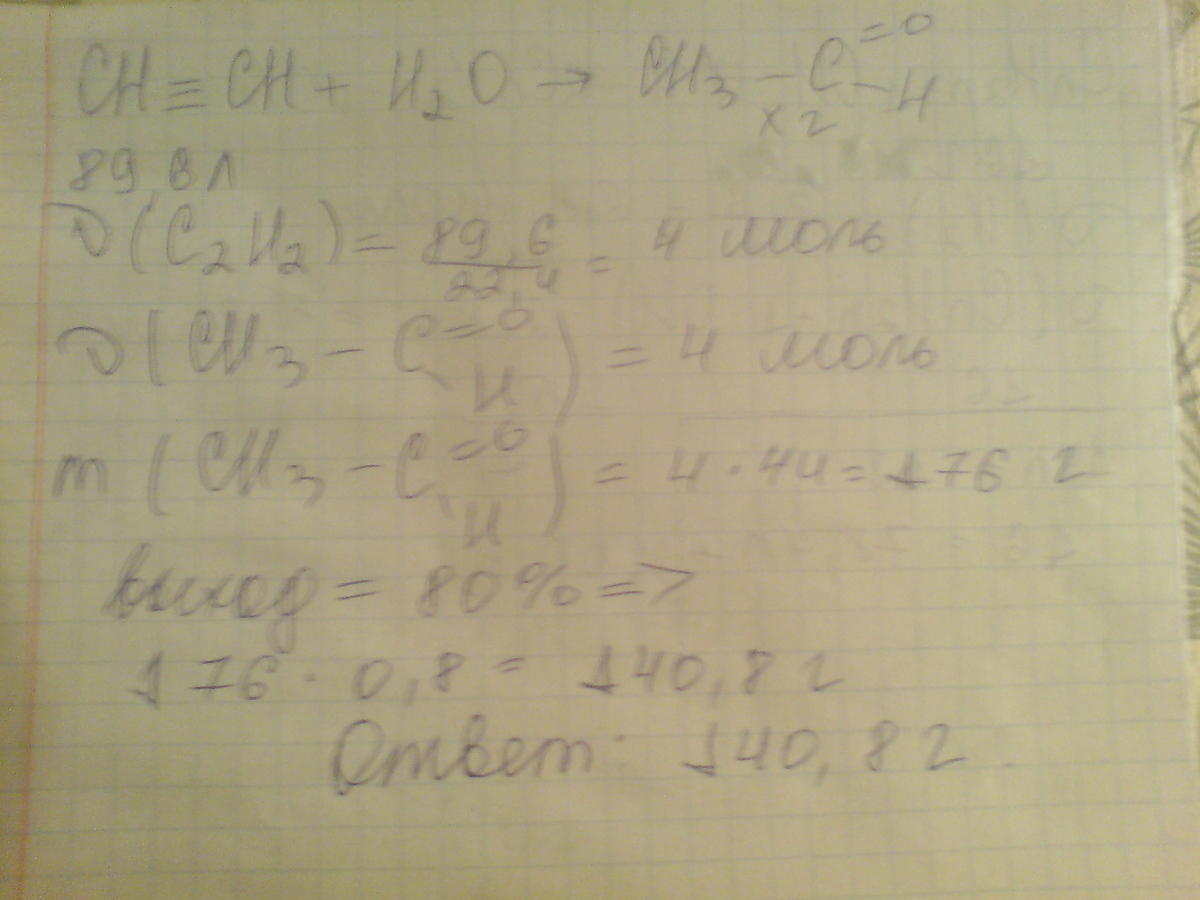 CH ≡ CH + H₂O → CH₃ – C =O –H
x г
89,6 л
ν(C₂H₂) = 89,6 / 22,4 = 4 моль
ν(CH₃ – C =O \H) = 4 моль
m(CH₃ – C =O \H) = 4 · 44 = 176 г
выход = 80% =>
176 · 0,8 = 140,8 г
Ответ: 140,8 г.